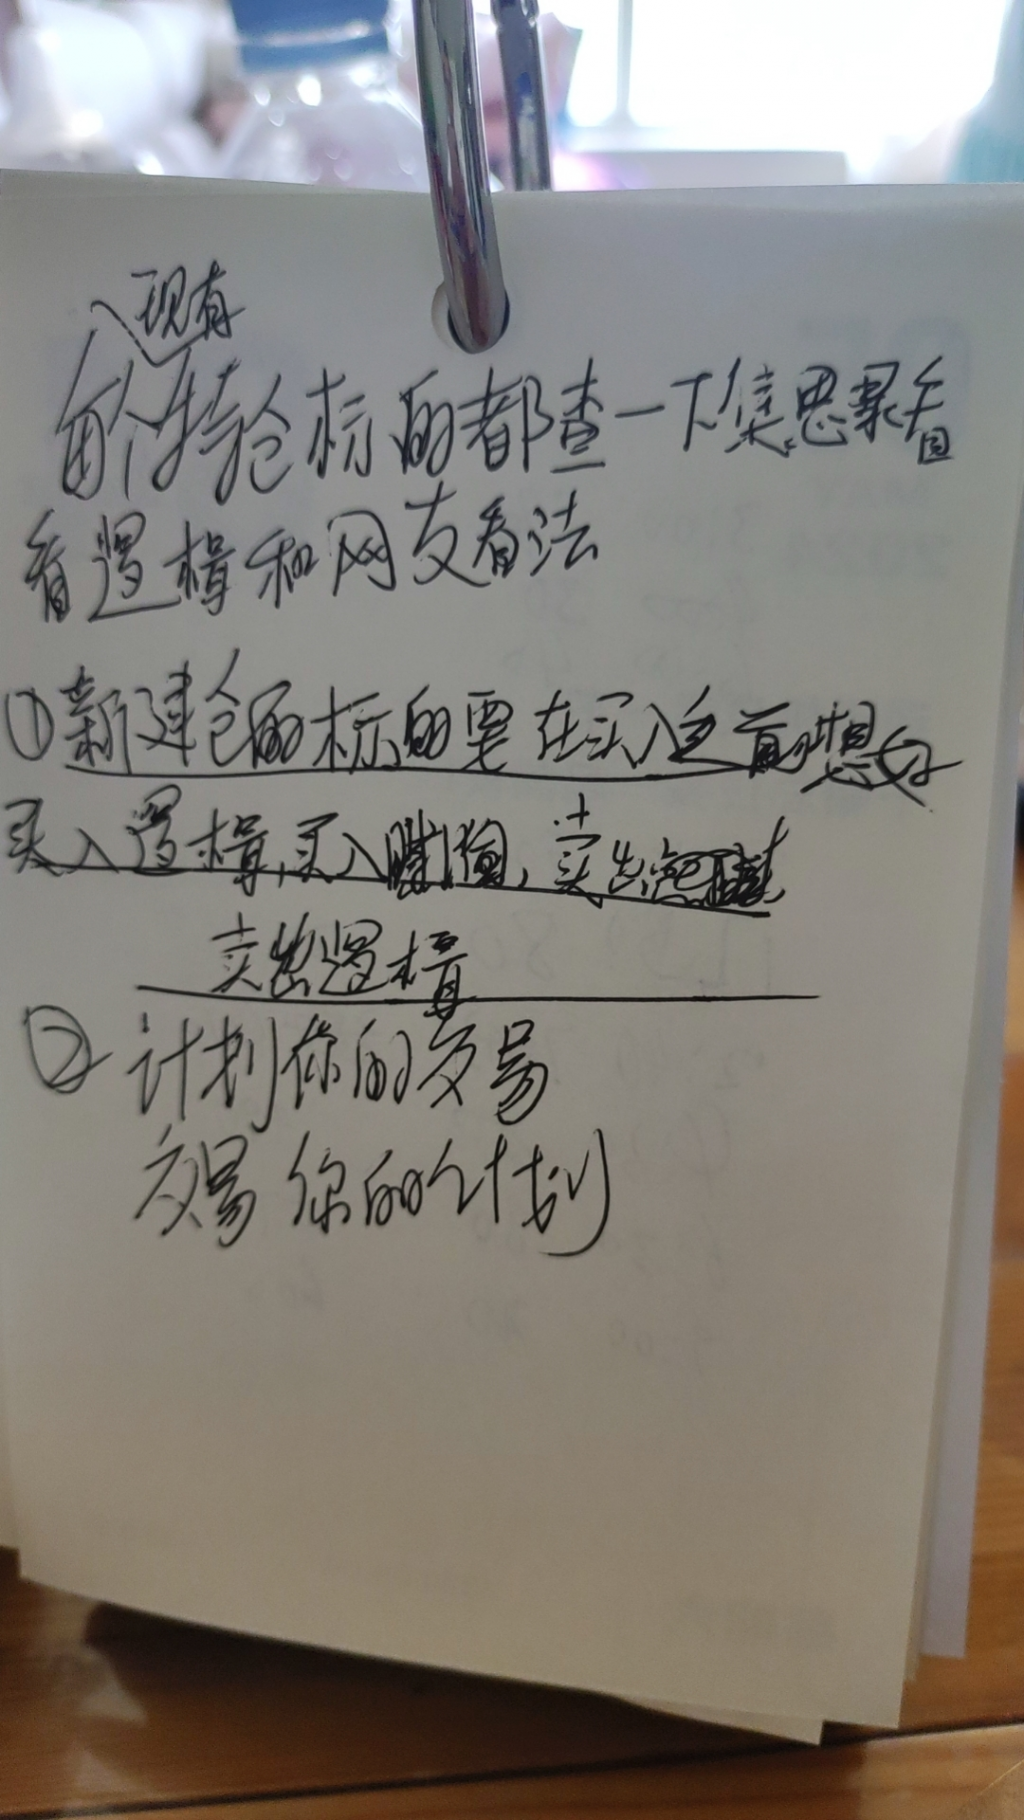 现有
每个持仓标的都查一下集思录看
看逻辑和网友看法
①新建仓的标的要在买入之前想好
买入逻辑,买入 卖出
卖出逻辑
② 计划你的交易
交易你的计划